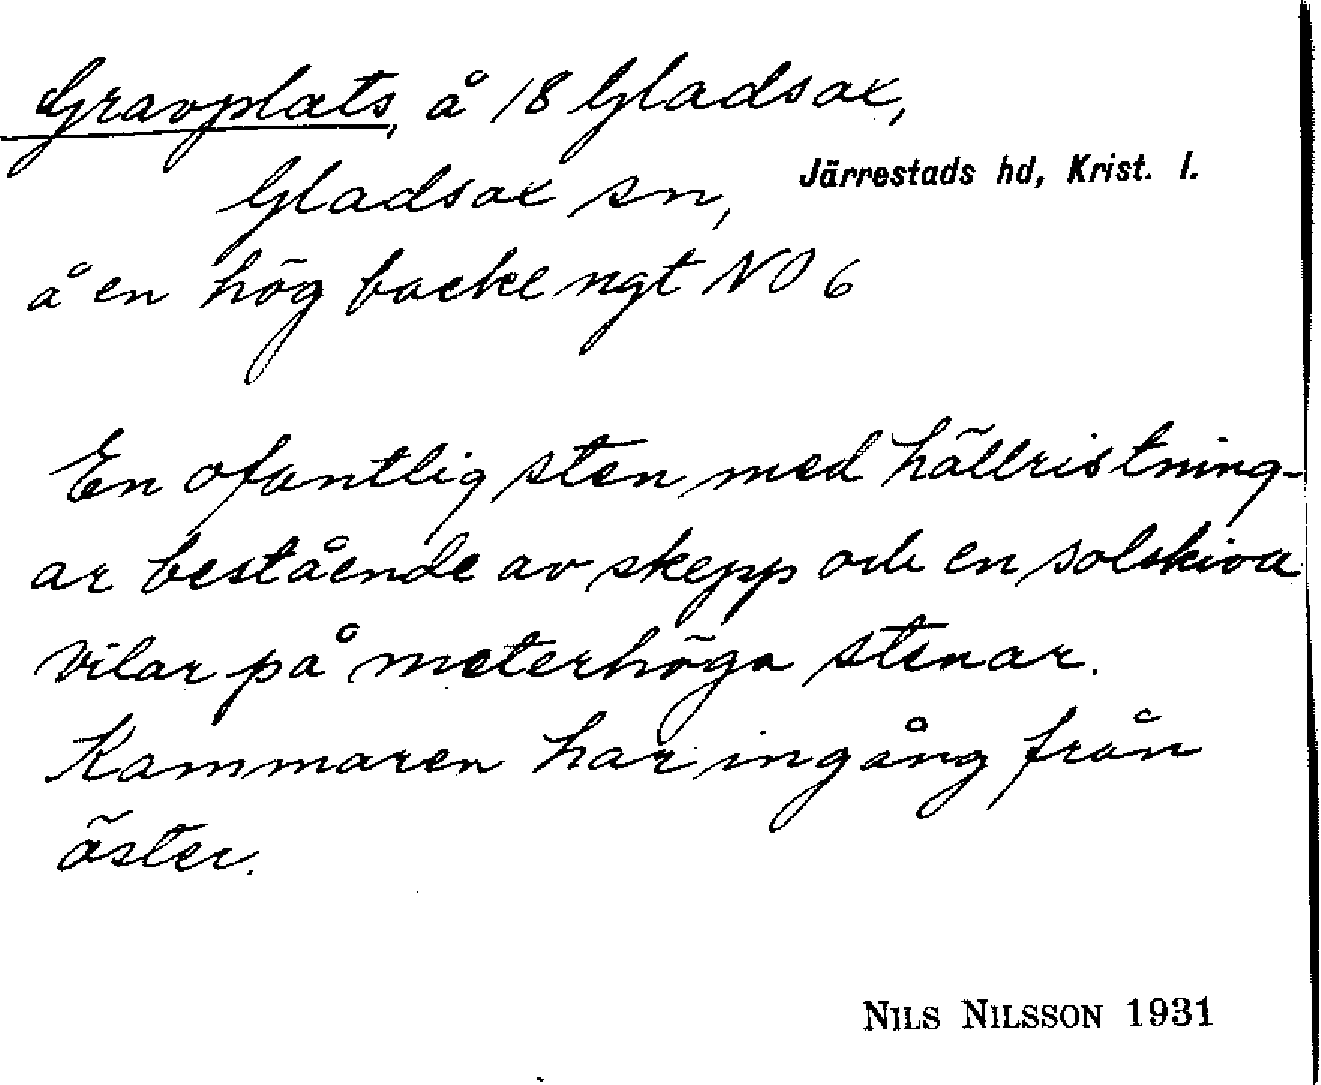 Gravplats, å 18 Gladsax,
Gladsax sn, Järrestads hd, Krist. l.
å en hög backe ngt NO 6
En ofantlig sten med hällristning-
ar bestående av skepp och en solskiva
vilar på meterhöga stenar.
Kammaren har ingång från
öster.
NILS NILSSON 1931